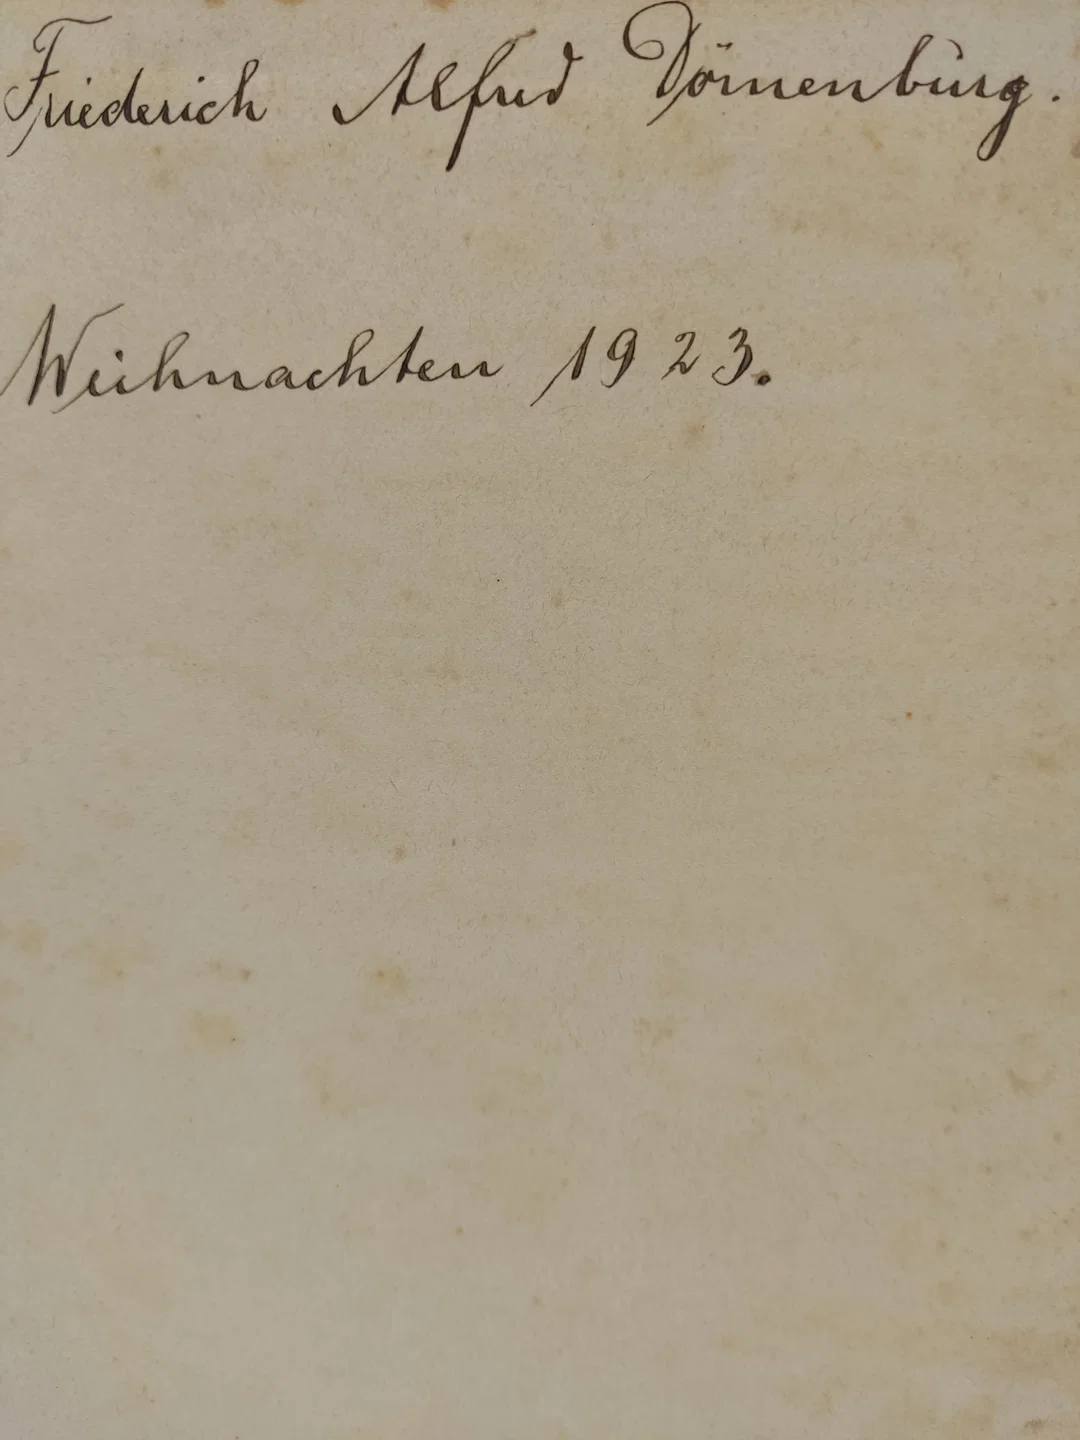 Friederich Alfred Dömenburg.
Weihnachten 1923.